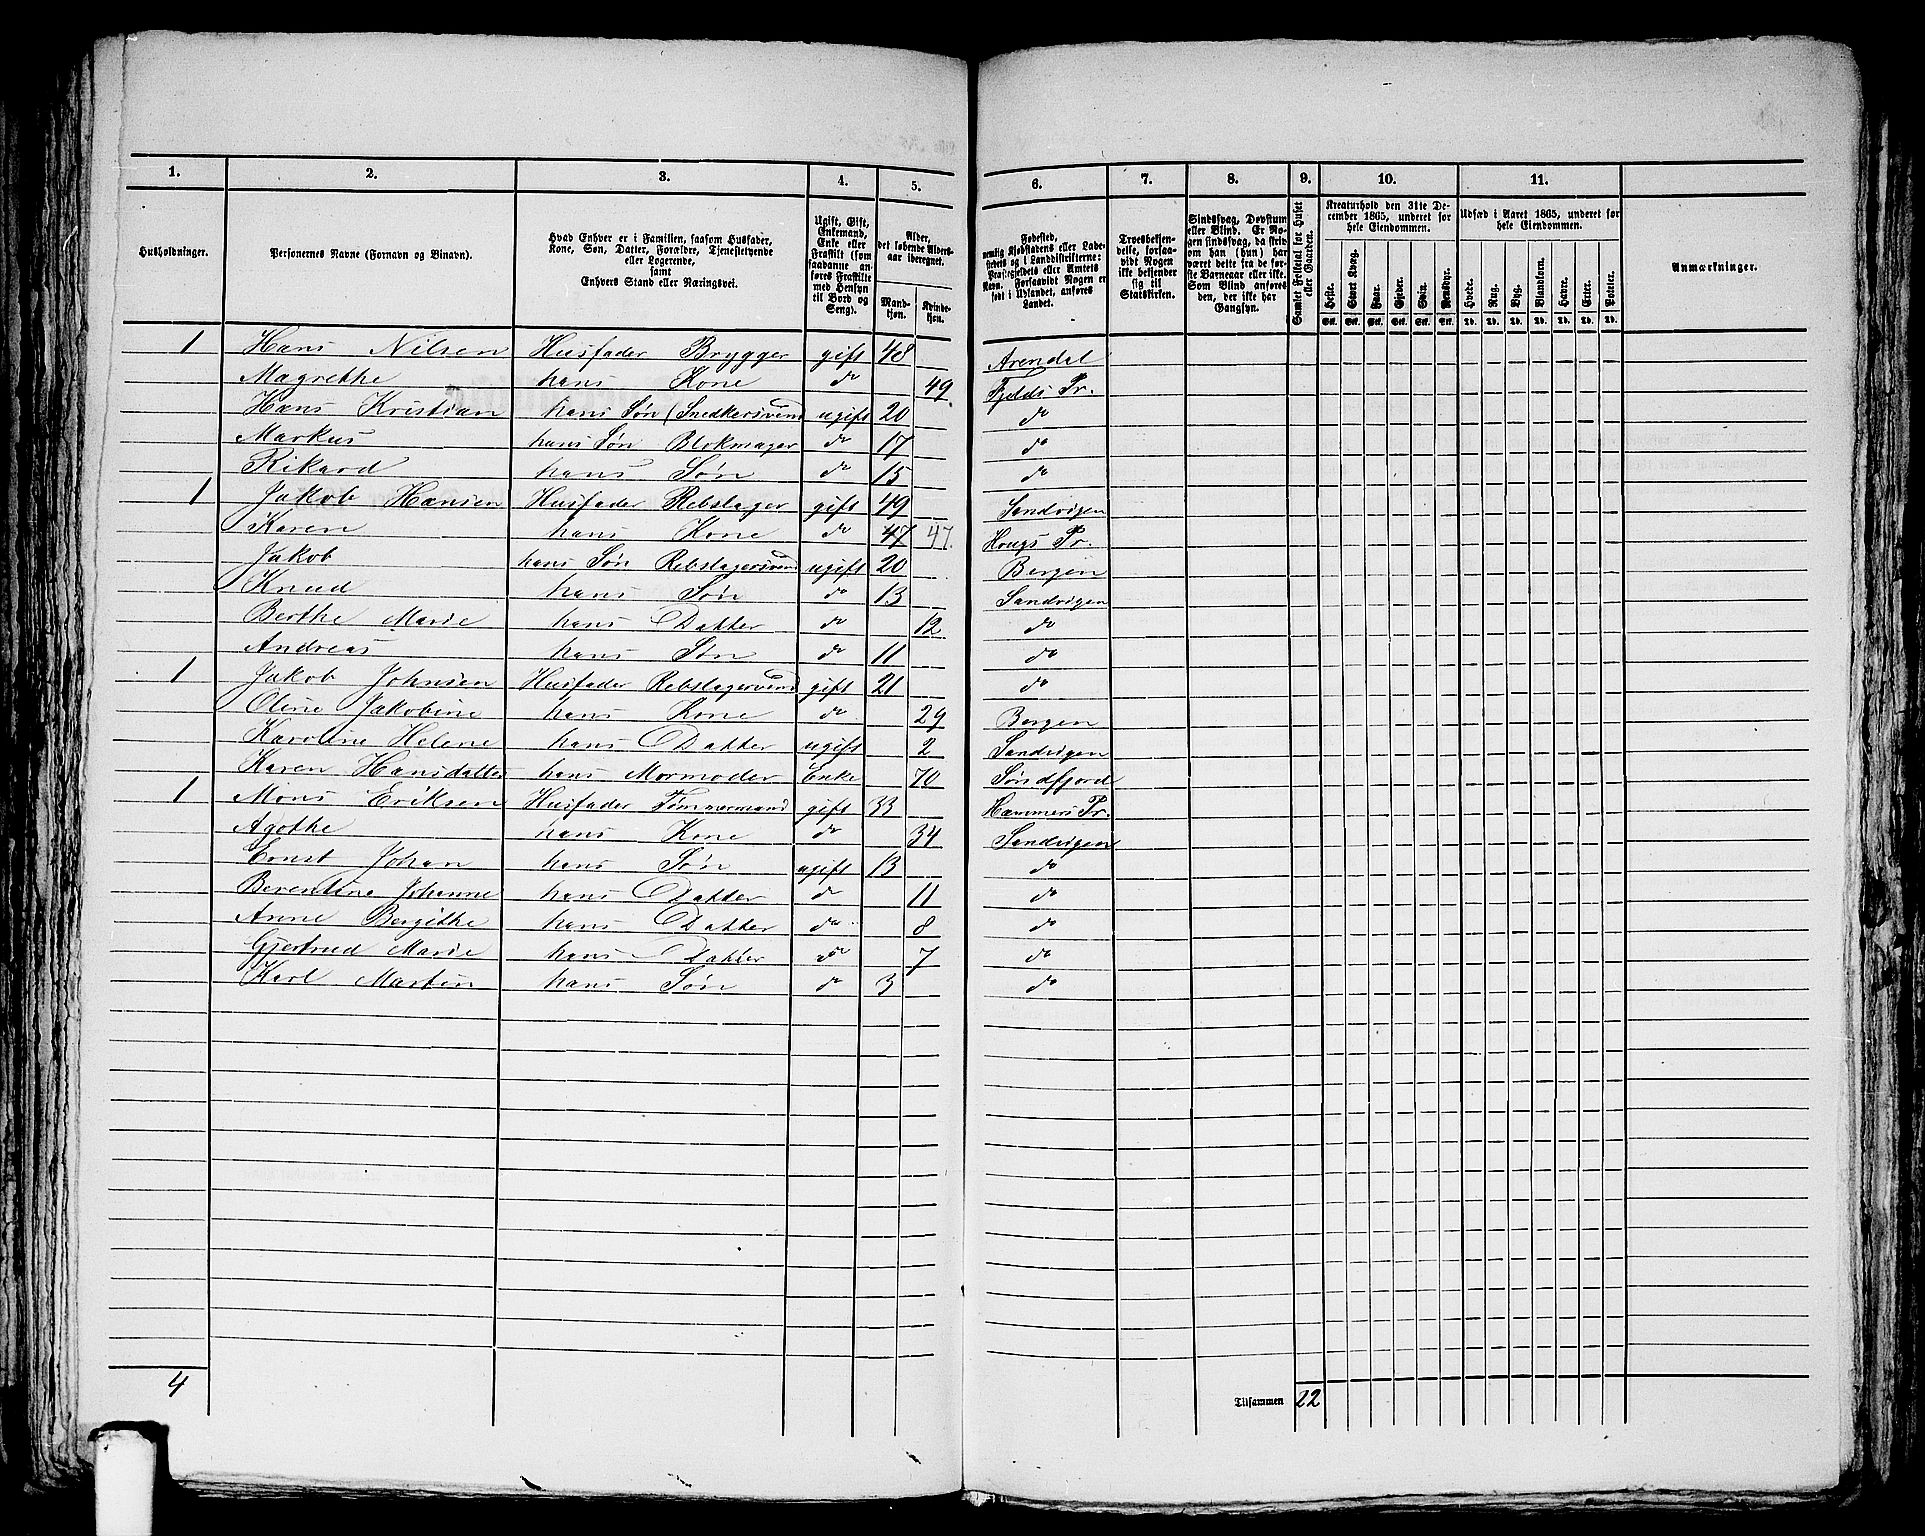 1. 2. 3. 4. 5. 6. 7. 8. 9. 10. 11.
Husholdninger.
Personernes Navne (Fornavn og Binavn).
Hvad Enhver er i Familien, saasom Husfader,
Kone, Søn, Datter, Forældre, Tjenestetyende
eller Logerende,
samt
Enhvers Stand eller Næringsvei.
Ugift, Gift,
Enkemand,
Enke eller
Fraskilt (som
saadanne anføres
Fraskilte
med Hensyn
til Bord og
Seng).
Alder,
det løbende Alders-
aar iberegnet.
Mand-
kjøn.
Kvinde-
kjøn.
Fødested,
nemlig Kjøbstadens eller Lade-
stedets og i Landdistrikterne:
Præstegjeldets eller Amtets
Navn. Forsaavidt Nogen er
født i Udlandet, anføres
Landet.
Troesbekjen-
delse, forsaa-
vidt Nogen
ikke bekjender
sig til
Statskirken.
Sindssvag, Døvstum
eller Blind. Er No-
gen sindssvag, da skriv
om han (hun) har
været dette fra de før-
ste Barneaar eller ikke.
Som Blind anføres
den, der ikke har
Gangsyn.
Samlet Folketal for Huset
eller Gaarden.
Kreaturhold den 31te De-
cember 1865, underet for
hele Eiendommen.
Heste. Stort Kvæg. Faar. Gjeder. Sviin. Rensdyr.
Udsæd i Aaret 1865, underet for
hele Eiendommen.
Hvede. Rug. Byg. Blandkorn. Havre. Erter. Poteter.
Anmærkninger.
Stk. Stk. Stk. Stk. Stk. Stk. Td. Td. Td. Td. Td. Td. Td.
1 Hans Nilsen Husfader Brygger gift 48 Arendal
Magrethe hans Kone do 49. Fjelds Pr.
Hans Kristian hans Søn (Snedkersvend ugift 20 do
Markus hans Søn Blokmager do 17 do
Rikard hans Søn do 15 do
1 Jakob Hansen Husfader Rebslager gift 49 Sandvigen
Karen hans Kone do 47 47. Hougs Pr.
Jakob hans Søn Rebslagersvend ugift 20 Bergen
Knud hans Søn do 13 Sandvigen
Berthe Marie hans Datter do 12 do
Andreas hans Søn do 11 do
1 Jakob Johnsen Husfader Rebslagersvend gift 21 do
Oline Jakobine hans Kone do 29 Bergen
Karoline Helene hans Datter ugift 2 Sandvigen
Karen Hansdatter hans Mormoder Enke 70 Søndfjord
1 Mons Eriksen Husfader Tømmermand gift 33 Hammers Pr.
Agothe hans Kone do 34 Sandvigen
Ernst Johan hans Søn ugift 13 do
Berentine Johanne hans Datter do 11 do
Anne Bergithe hans Datter do 8 do
Gjertrud Marie hans Datter do 7 do
Karl Martin hans Søn do 3 do
4 Tilsammen 22